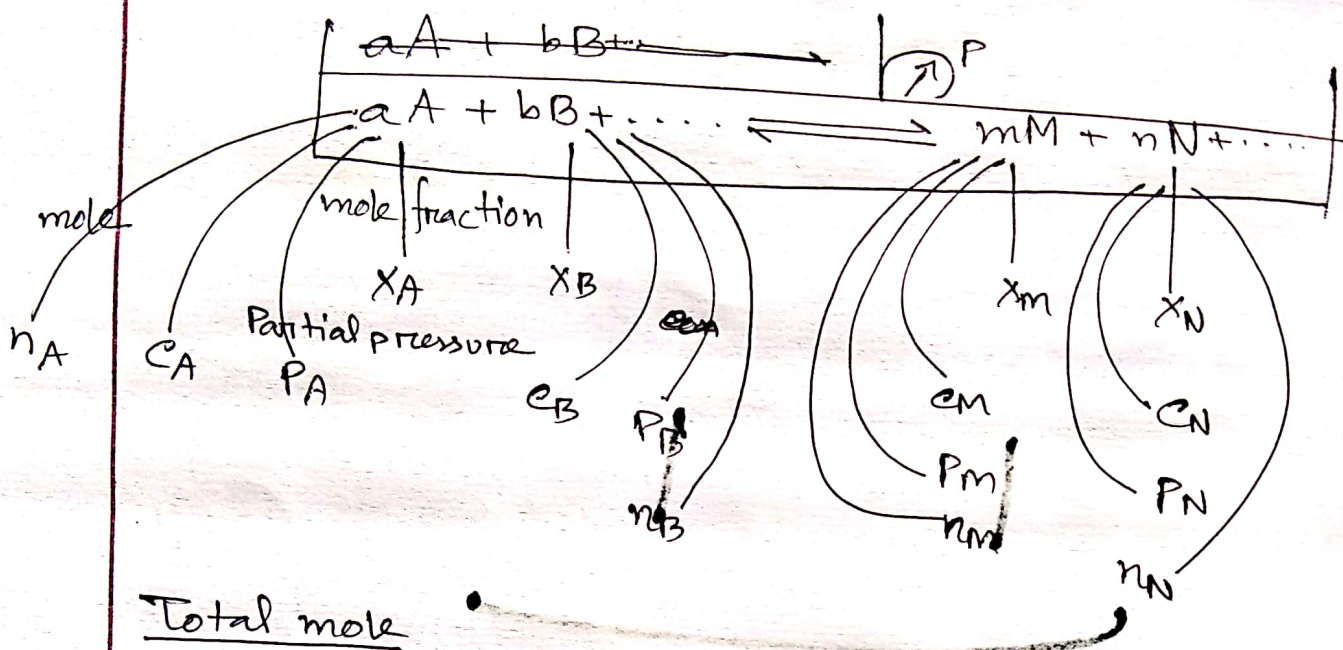 aA + bB+...
P
aA + bB+..... ⇌ mM + nN+.....
mole
mole fraction
XA XB Xm XN
nA CA Partial pressure
PA CB CM CN
PB PM PN
nB nM nN
Total mole